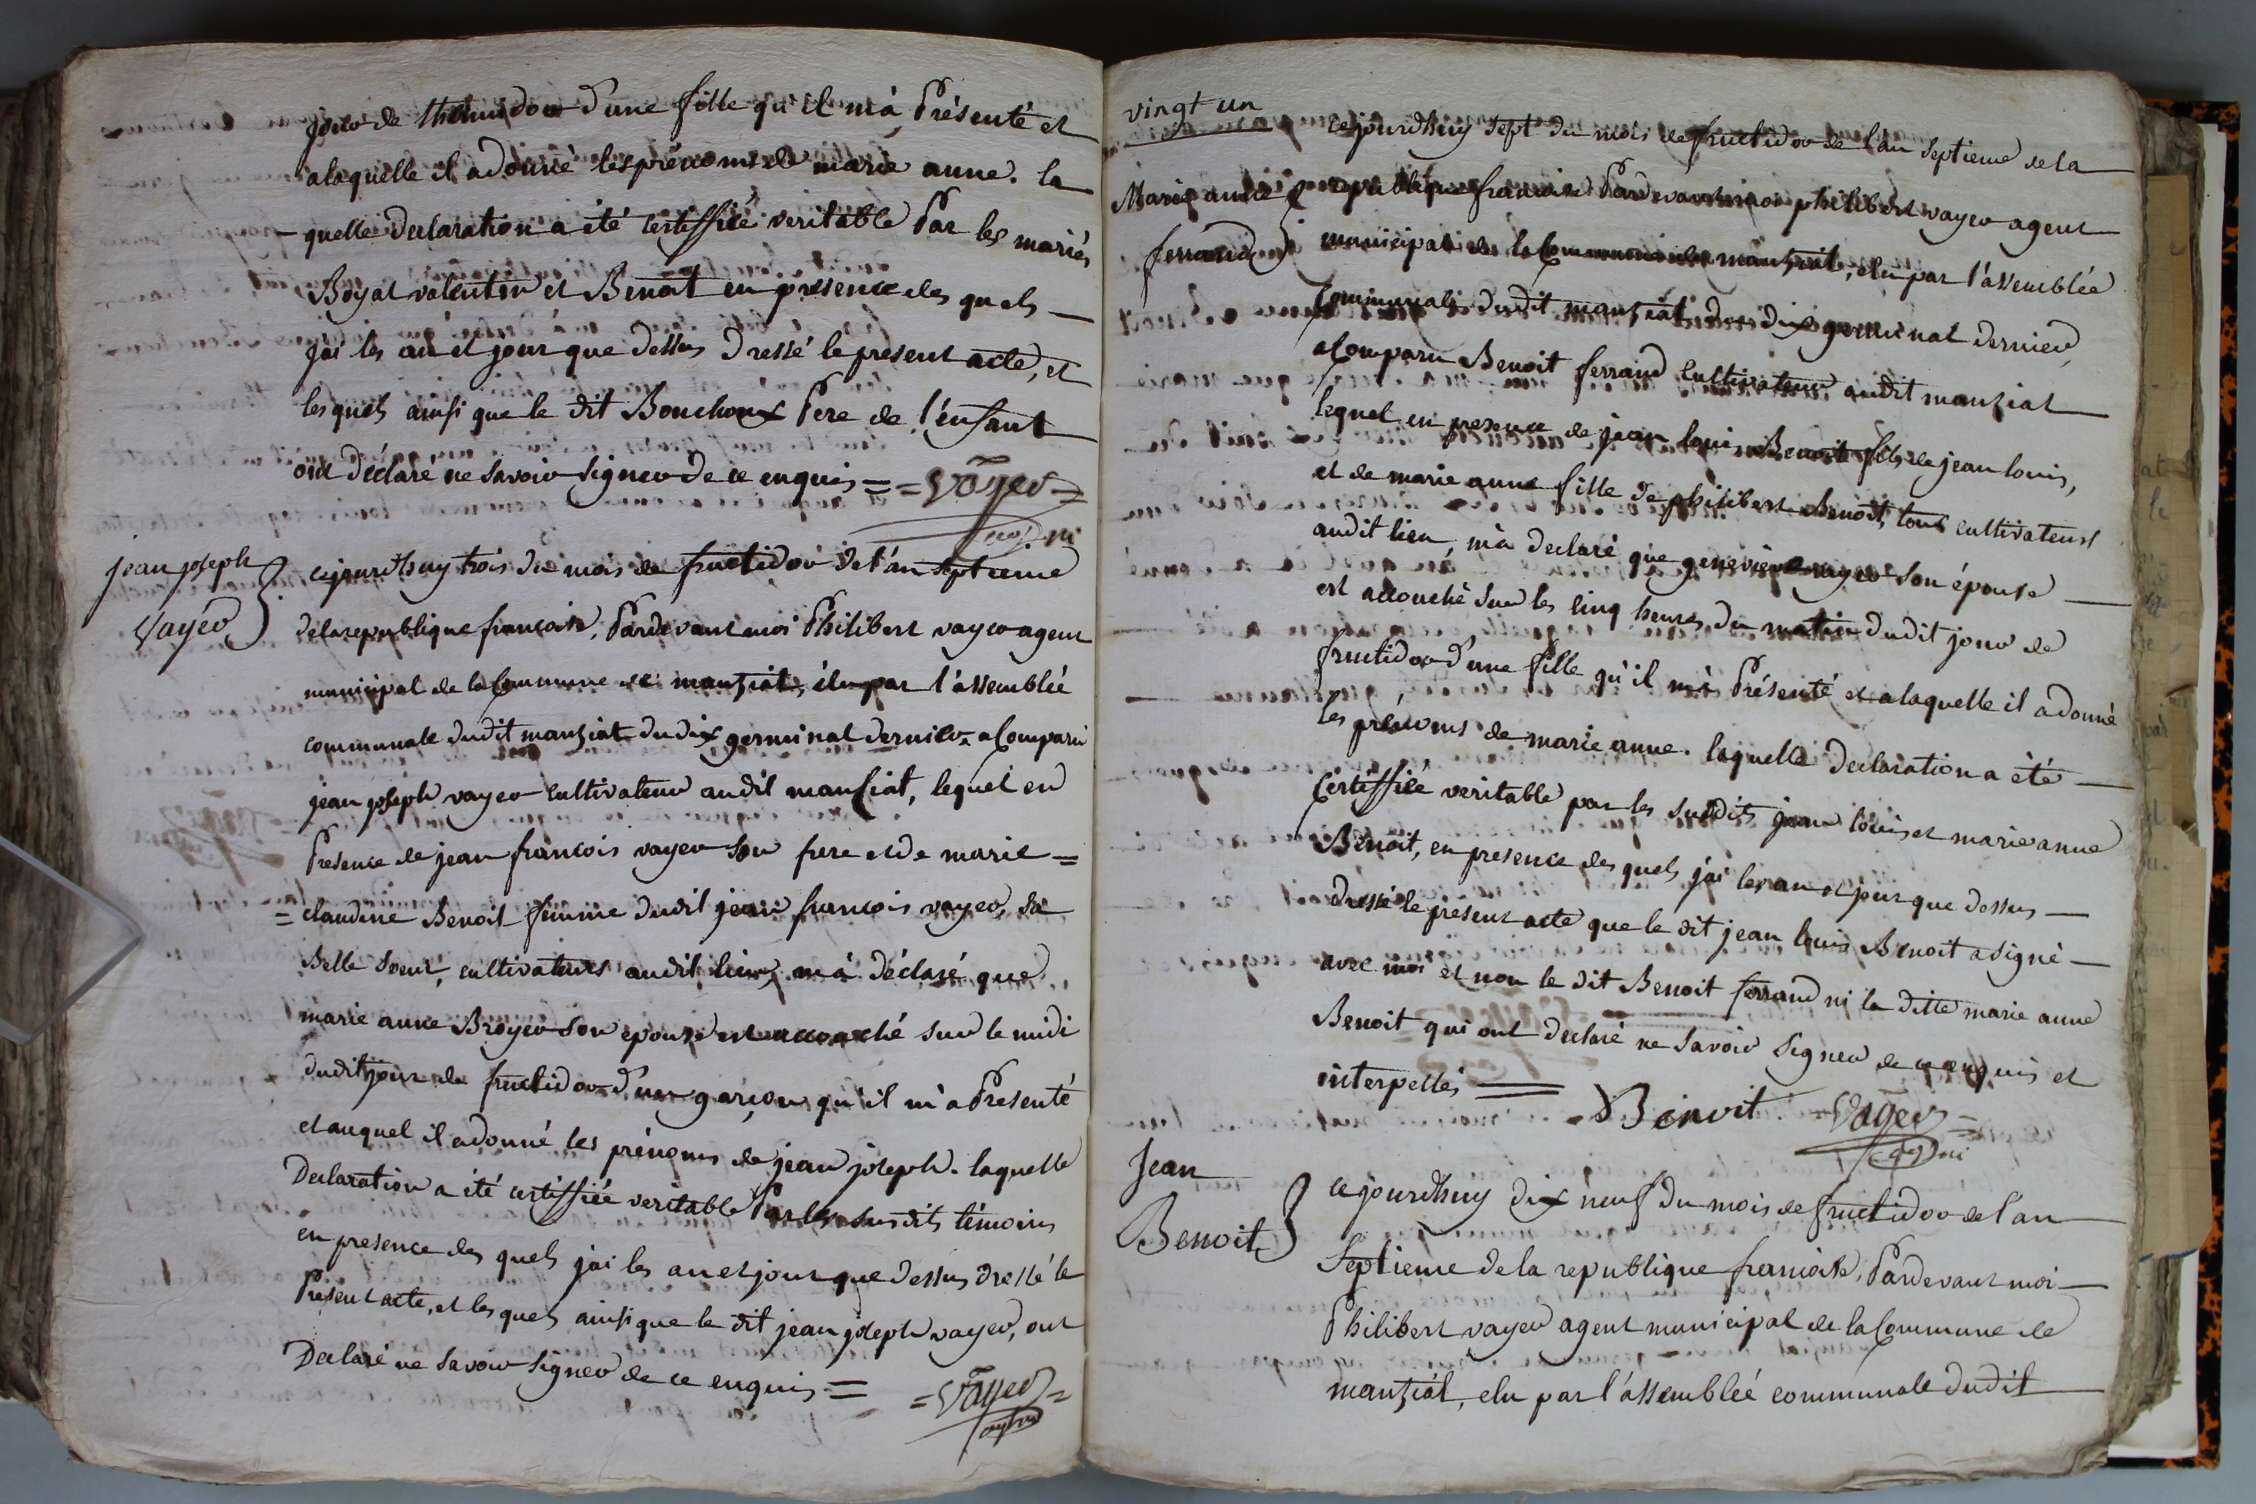 jour de thermidor d'une fille qu'il m'a Présenté et
alaquelle il adonné les prénoms de marie anne. la
quelle declaration a été certiffié veritable Par les mariés
Boyat valentin et Benoit en présence des quels
jai les an et jour que dessus dressé le present acte, et
lesquels ainsi que le dit Bouchoux Pere de l'enfant
ont déclaré ne savoir signer de ce enquis = = Vayer =
jean joseph
Vayer
cejourdhuy trois du mois de fructidor de l'an septieme
delarepublique francoise, Pardevant moi Philibert vayer agent
municipal de la Commune de manziat, élu par l'assemblée
communale dudit manziat du dix germinal dernier, a Comparu
jean joseph vayer cultivateur audit manziat, lequel en
Presence de jean francois vayer son frere et de marie =
= claudine Benoit femme dudit jean francois vayer, sa
Belle soeur, cultivateurs audit lieu, m'a déclaré que
marie anne Broyer son epouse est accouché sur le midi
dudit jour de fructidor d'un garçon qu'il m'a Presenté
et auquel il adonné les prénoms de jean joseph. laquelle
Declaration a été certiffiée veritable Par les susdits témoins
en presence des quels jai les an et jour que dessus dressé le
Présent acte, et les quels ainsi que le dit jean joseph vayer, ont
Declaré ne savoir signer de ce enquis = = Vayer =
vingt un
Marie anne
ferrand
cejourdhuy sept du mois de fructidor de l'an septieme de la
republique francoise Pardevant moi philibert vayer agent
municipal de la Commune de manziat, élu par l'assemblée
Communale dudit manziat du dix germinal dernier,
a Comparu Benoit ferrand Cultivateur audit manziat
lequel en presence de jean louis Benoit fils de jean louis,
et de marie anne fille de philibert Benoit, tous cultivateurs
audit lieu, m'a declaré que genevieve vayer son épouse
est accouché sur les cinq heures du matin dudit jour de
fructidor d'une fille qu'il m'a Présenté et alaquelle il adonné
les prénoms de marie anne. laquelle declaration a été
Certiffiée veritable par les susdits jean louis et marie anne
Benoit, en presence des quels j'ai les an et jour que dessus
dressé le present acte que le dit jean louis Benoit a signé
avec moi et non le dit Benoit ferrand ni la ditte marie anne
Benoit qui ont declaré ne savoir signer de ce enquis et
interpellés = Benoit Vayer =
Jean
Benoit
cejourdhuy dix neuf du mois de fructidor de l'an
Septieme de la republique francoise, Pardevant moi
Philibert vayer agent municipal de la Commune de
manziat, elu par l'assembleé communale dudit